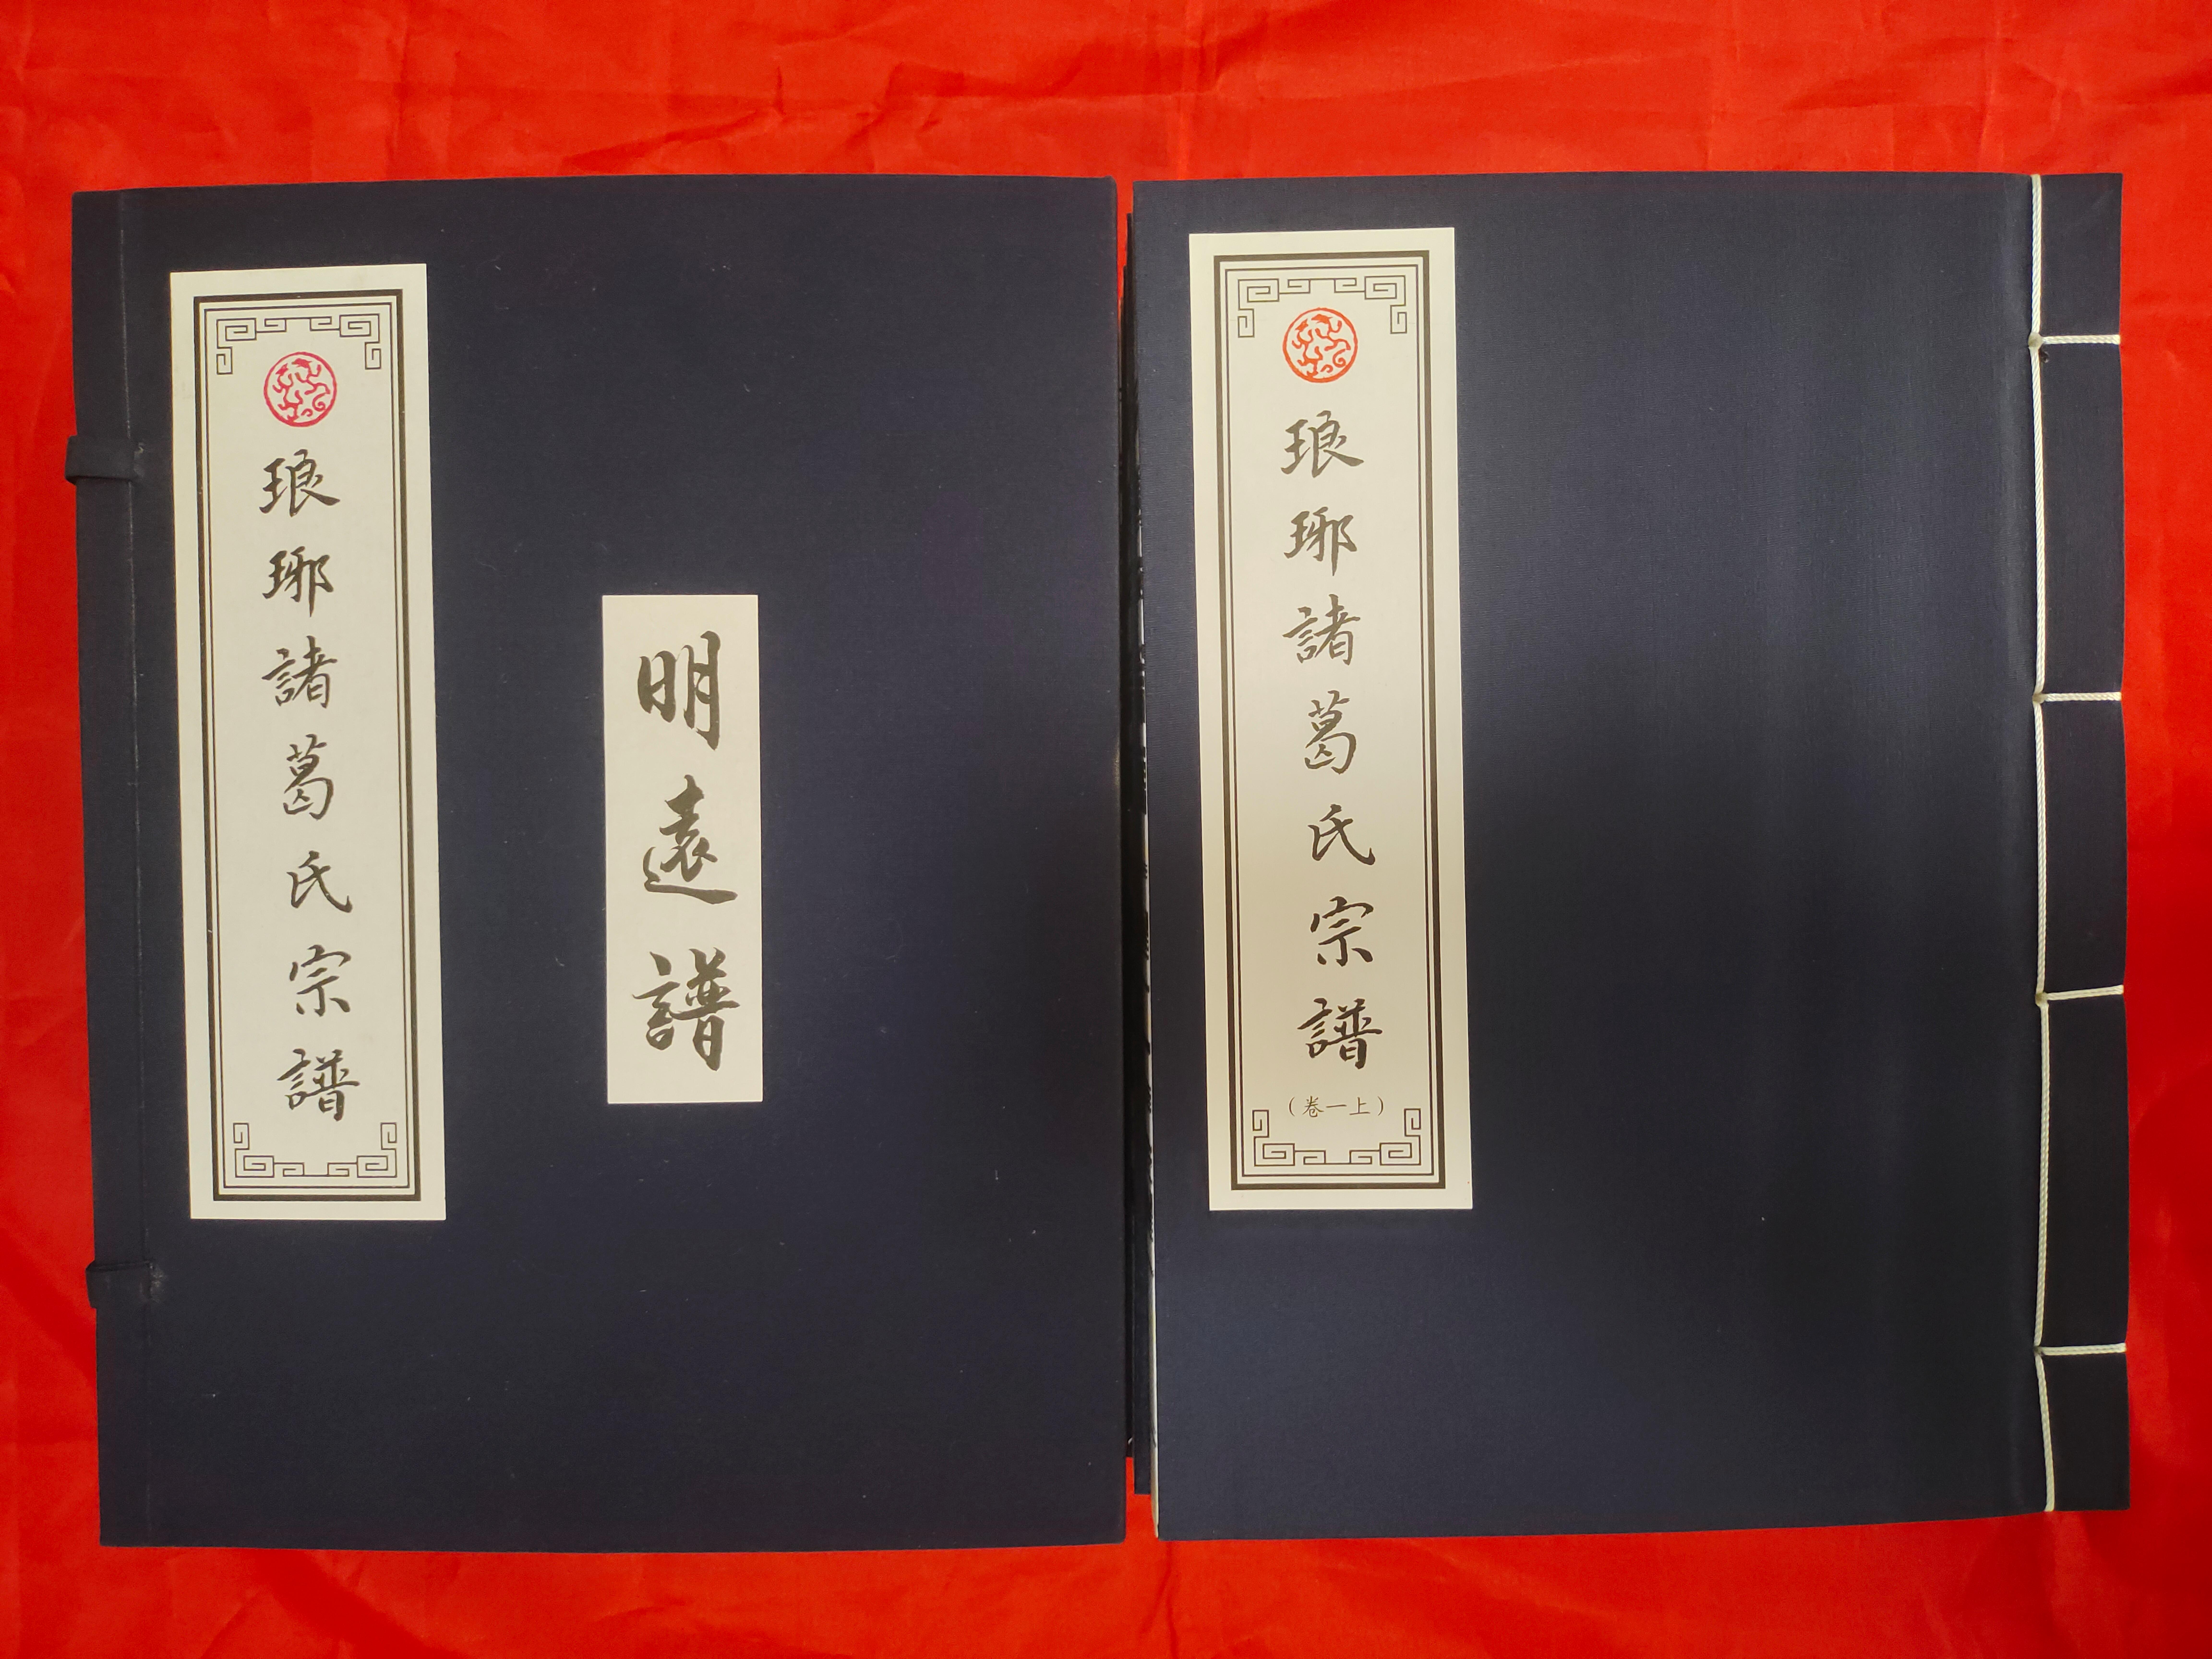 琅琊諸葛氏宗譜
明遠譜
琅琊諸葛氏宗譜
（卷一上）